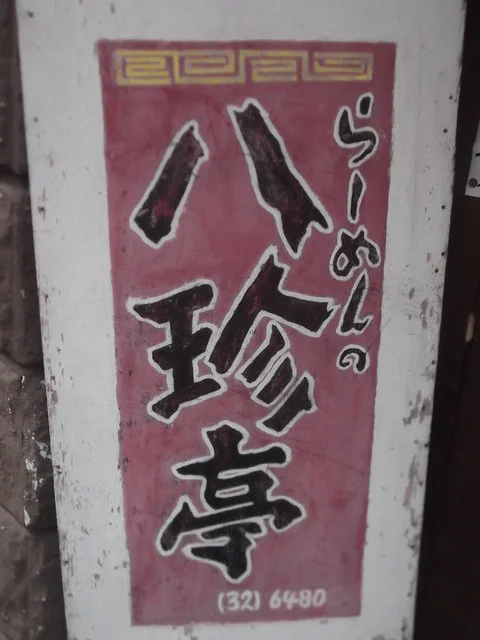 らーめんの
八珍亭
(32) 6480